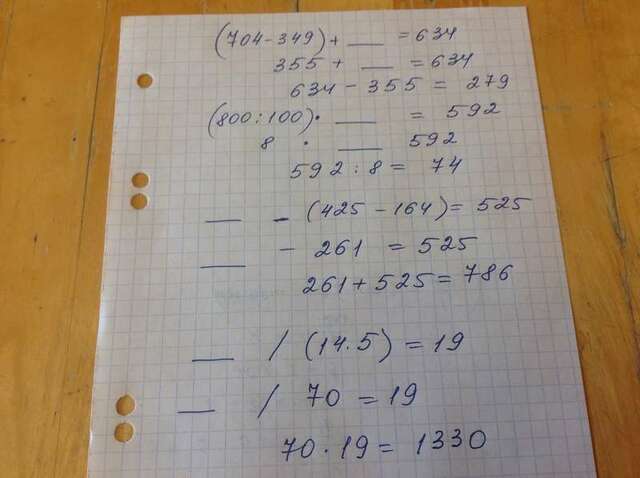 (704-349)+ ___ =634
355 + ___ =634
634 - 355 = 279
(800:100)· ___ = 592
8 · ___ 592
592 : 8 = 74
___ - (425 - 164) = 525
___ - 261 = 525
261 + 525 = 786
___ / (14·5) = 19
___ / 70 = 19
70 · 19 = 1330